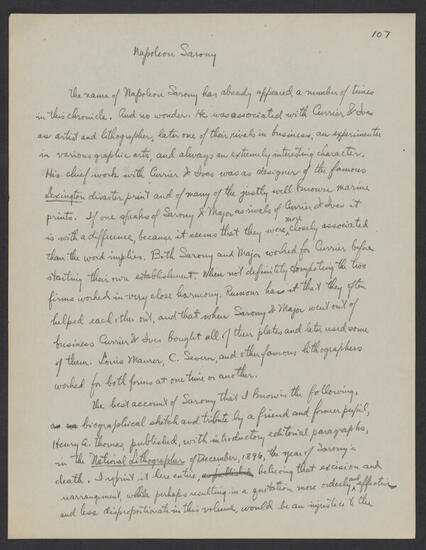 107
Napoleon Sarony
The name of Napoleon Sarony has already appeared a number of times
in this chronicle. And no wonder. He was associated with Currier & Ives
as artist and lithographer, later one of their rivals in business, an experimenter
in various graphic arts, and always an extremely interesting character.
His chief work with Currier & Ives was as designer of the famous
Lexington disaster print and of many of the justly well known marine
prints. If one speaks of Sarony & Major as rivals of Currier & Ives it
is with a difference, because it seems that they were more closely associated
than the word implies. Both Sarony and Major worked for Currier before
starting their own establishment. When not definitely competing the two
firms worked in very close harmony. Rumour has it that they often
helped each other out, and that when Sarony & Major went out of
business Currier & Ives bought all of their plates and later used some
of them. Louis Maurer, C. Severn, and other famous lithographers
worked for both firms at one time or another.
The best account of Sarony that I know is the following,
biographical sketch and tribute by a friend and former pupil,
Henry A. Thomas, published, with introductory editorial paragraphs,
in the National Lithographer of December, 1896, the year of Sarony's
death. I reprint it here entire, as published believing that excision and
rearrangement, while perhaps resulting in a quotation more orderly and effective
and less disproportionate in this volume, would be an injustice to the